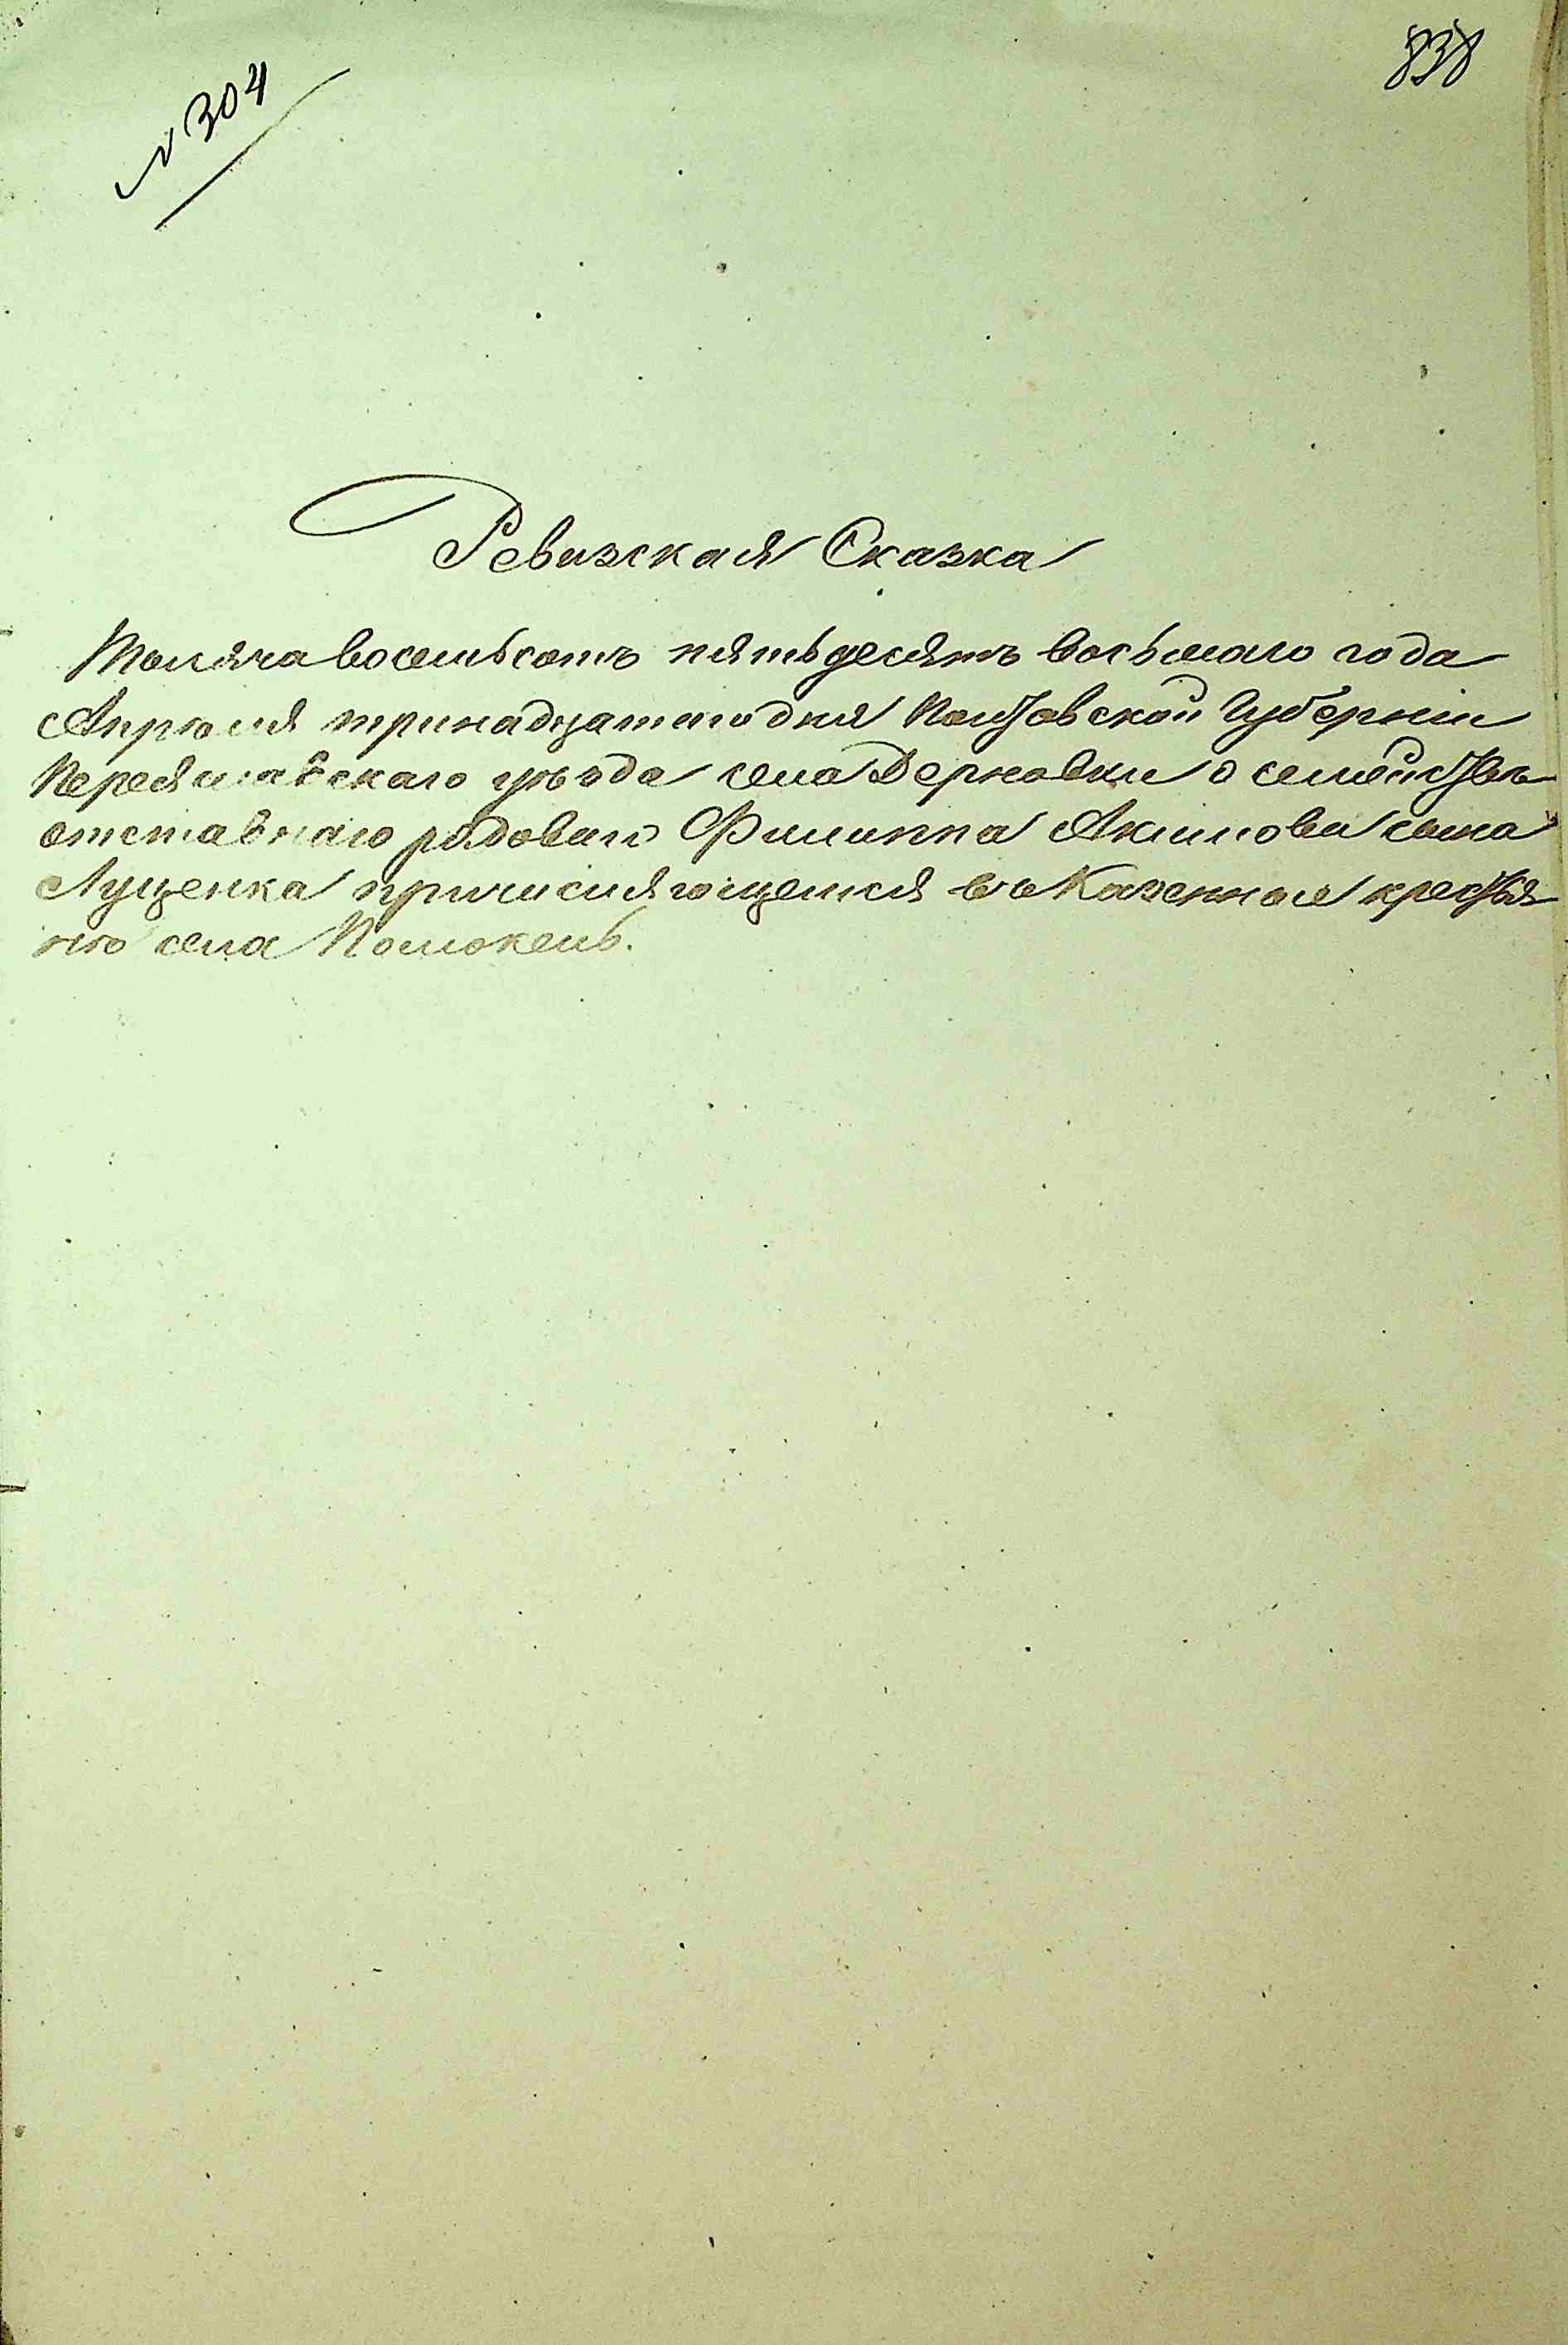 838
№ 304
Ревизская Сказка
Тысяча восемьсотъ пятьдесятъ восьмаго года
Апрѣля тринадцатаго дня Полтавской Губерніи
Переяславскаго уѣзда села Дерновки о семействѣ
отставнаго рядоваго Филиппа Акимова сына
Луценка причисляющемся въ Казенные крестья
не села Помокель.